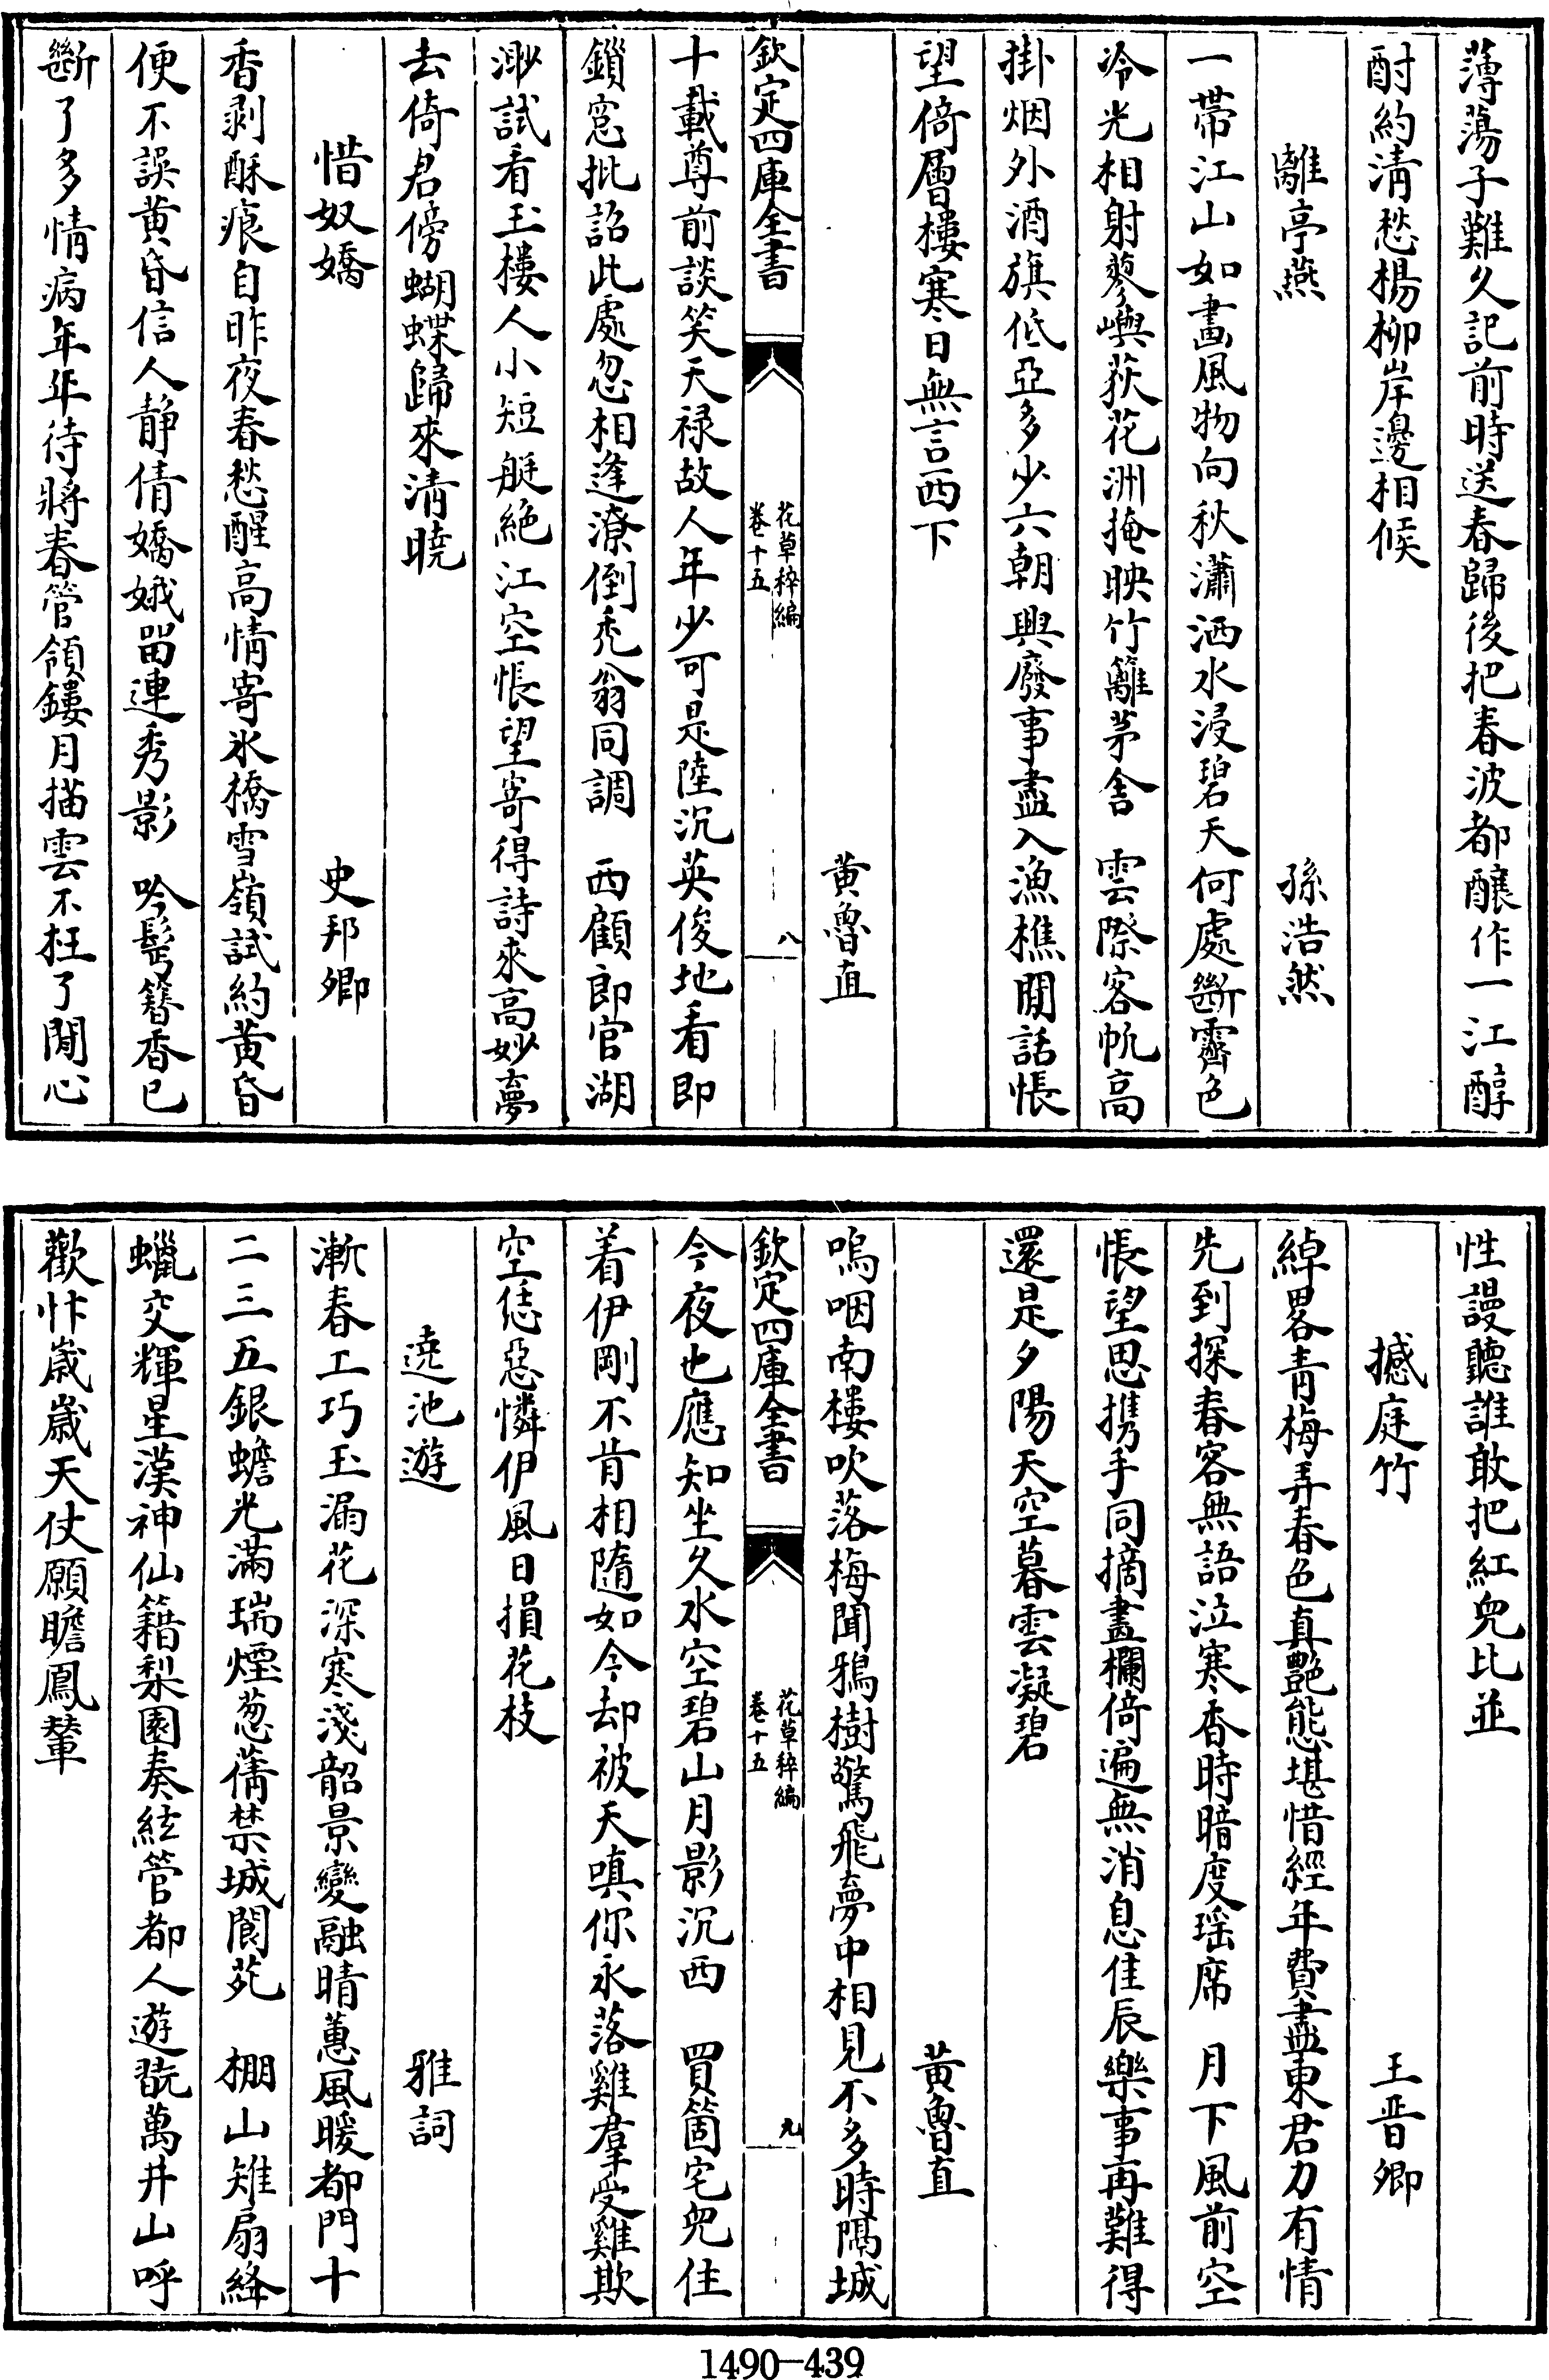 薄蕩子難久記前時送春歸後把春波都釀作一江醇
酎約清愁楊柳岸邊相候
離亭燕　孫浩然
一帶江山如畫風物向秋瀟洒水浸碧天何處斷霽色
冷光相射蓼嶼荻花洲掩映竹籬茅舍　雲際客帆高
掛烟外酒旗低亞多少六朝興廢事盡入漁樵閒話悵
望倚層樓寒日無言西下
黄魯直
欽定四庫全書
花草稡編
卷十五
八
十載尊前談笑天禄故人年少可是陸沉英俊地看即
鎖窓批詔此處忽相逢潦倒秃翁同調　西顧郎官湖
渺試看玉樓人小短艇絶江空悵望寄得詩來高妙夢
去倚君傍蝴蝶歸來清曉
惜奴嬌　史邦卿
香剥酥痕自昨夜春愁醒高情寄氷橋雪嶺試約黄昏
便不誤黄昏信人静倩嬌娥畱連秀影　吟鬂簪香已
斷了多情病年年待將春管領鏤月描雲不枉了閒心
性謾聽誰敢把紅兒比並
撼庭竹　王晋卿
綽畧青梅弄春色真艷態堪惜經年費盡東君力有情
先到探春客無語泣寒香時暗度瑶席　月下風前空
悵望思携手同摘畫欄倚遍無消息佳辰樂事再難得
還是夕陽天空暮雲凝碧
黄魯直
嗚咽南樓吹落梅聞鴉樹驚飛夢中相見不多時隔城
欽定四庫全書
花草稡編
卷十五
九
今夜也應知坐久水空碧山月影沉西　買箇宅兒住
着伊剛不肯相隨如今却被天嗔你永落雞羣受雞欺
空恁惡憐伊風日損花枝
遶池遊　雅詞
漸春工巧玉漏花深寒淺韶景變融晴蕙風暖都門十
二三五銀蟾光滿瑞煙葱蒨禁城閬苑　棚山雉扇絳
蠟交輝星漢神仙籍梨園奏絃管都人遊翫萬井山呼
歡忭歲歲天仗願瞻鳳輦
1490—439